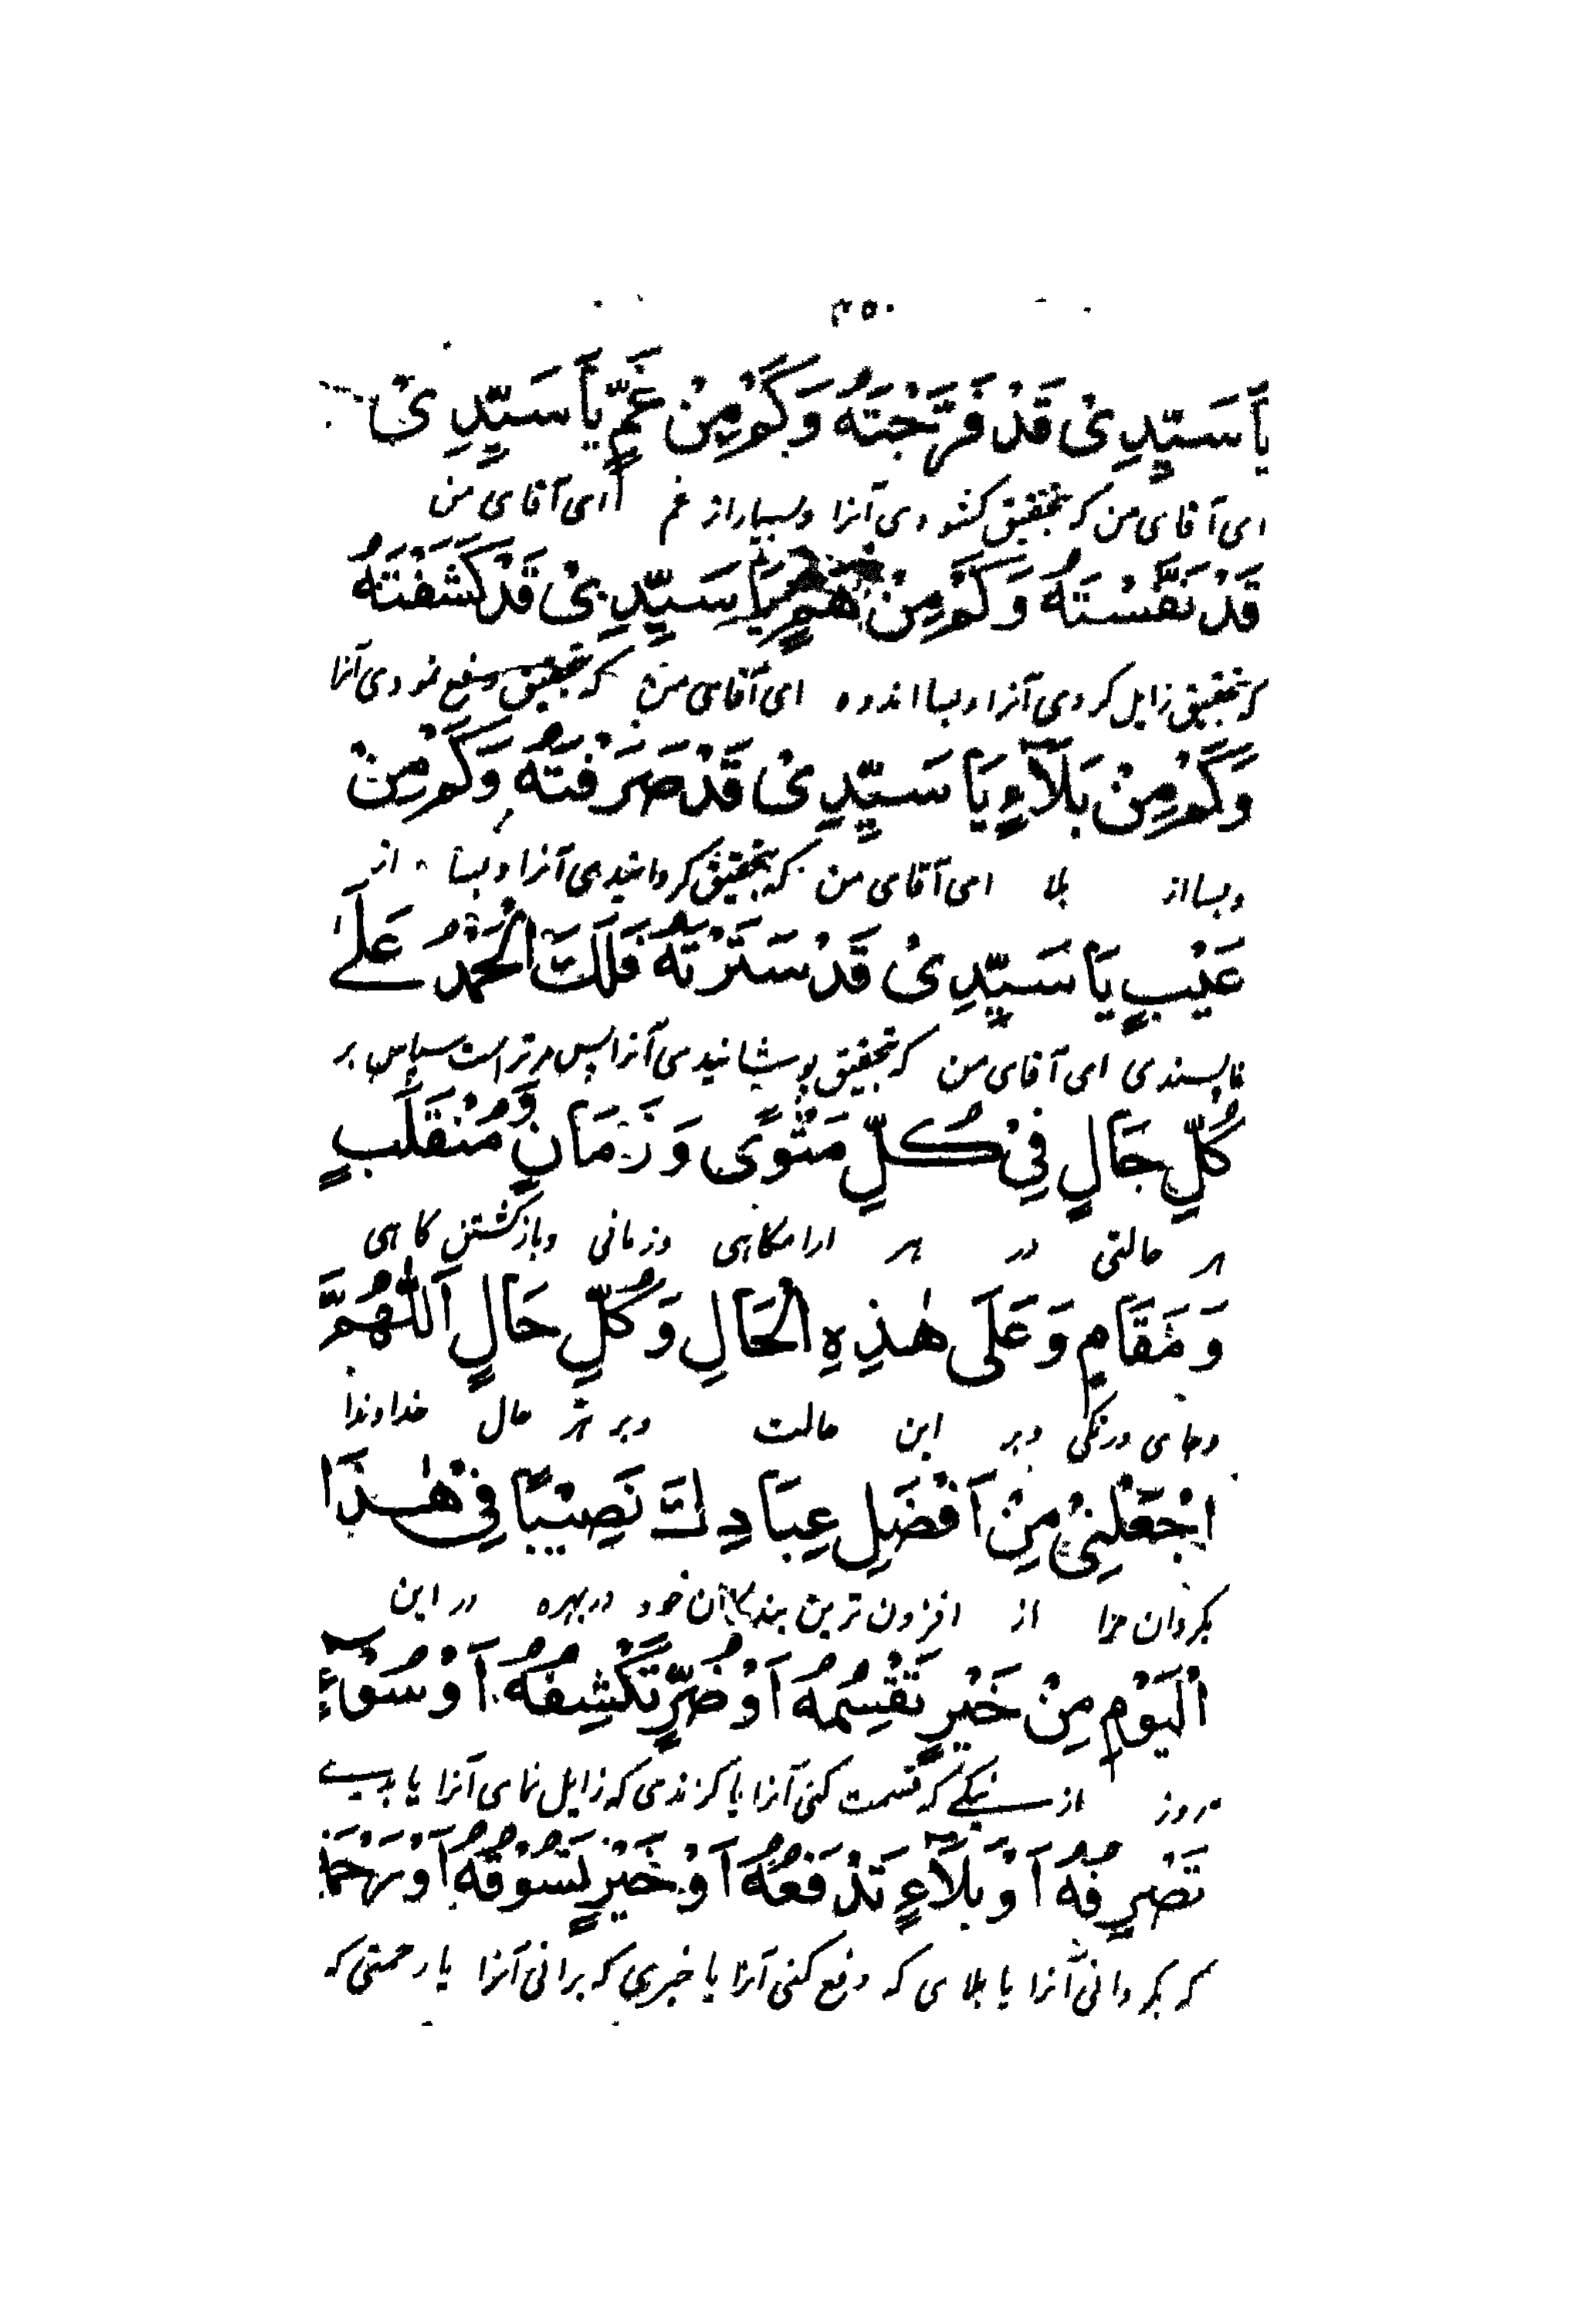 ۴۵۰
يَا سَيِّدِىْ قَدْ فَرَّجْتَهُ وَكَمْ مِنْ غَمٍّ يَا سَيِّدِىْ
ای آقای من که بتحقیق کشودی آنرا وبسیار از غم ای آقای من
قَدْ نَفَّسْتَهُ وَكَمْ مِنْ هَمٍّ يَا سَيِّدِىْ قَدْ كَشَفْتَهُ
که بتحقیق زایل کردی آنرا وبسا اندوه ای آقای من که بتحقیق دفع نمودی آنرا
وَكَمْ مِنْ بَلَآءٍ يَا سَيِّدِىْ قَدْ صَرَفْتَهُ وَكَمْ مِنْ
وبسا از بلا ای آقای من که بتحقیق کردانیدی آنرا وبسا از
عَيْبٍ يَا سَيِّدِىْ قَدْ سَتَرْتَهُ فَلَكَ الْحَمْدُ عَلٰے
ناپسندی ای آقای من که بتحقیق پوشانیدی آنرا پس مر تراست سپاس بر
كُلِّ حَالٍ فِىْ كُلِّ مَثْوًى وَ زَمَانٍ وَّمُنْقَلَبٍ
هر حالتی در هر ارامکاهی وزمانی وبازکشتن کاهی
وَ مَقَامٍ وَ عَلَى هٰذِهِ الْحَالِ وَ كُلِّ حَالٍ اَللّٰهُمَّ
وجای درنکی وبر این حالت وبر هر حال خداوندا
اجْعَلْنِىْ مِنْ اَفْضَلِ عِبَادِكَ نَصِيْبًا فِىْ هٰذَا
بکردان مرا از افزون ترین بندکان خود در بهره در این
الْيَوْمِ مِنْ خَيْرٍ تَقْسِمُهُ اَوْ ضُرٍّ تَكْشِفُهُ اَوْ سُوْءٍ
روز از نیکے که قسمت کنی آنرا یا کزندی که زایل نمای آنرا یا بدیے
تَصْرِفُهُ اَوْ بَلَآءٍ تَدْفَعُهُ اَوْ خَيْرٍ تَسُوْقُهُ اَوْ رَحْمَةٍ
که بکردانی آنرا یا بلای که دفع کنی آنرا یا خیری که برانی آنرا یا رحمتی که